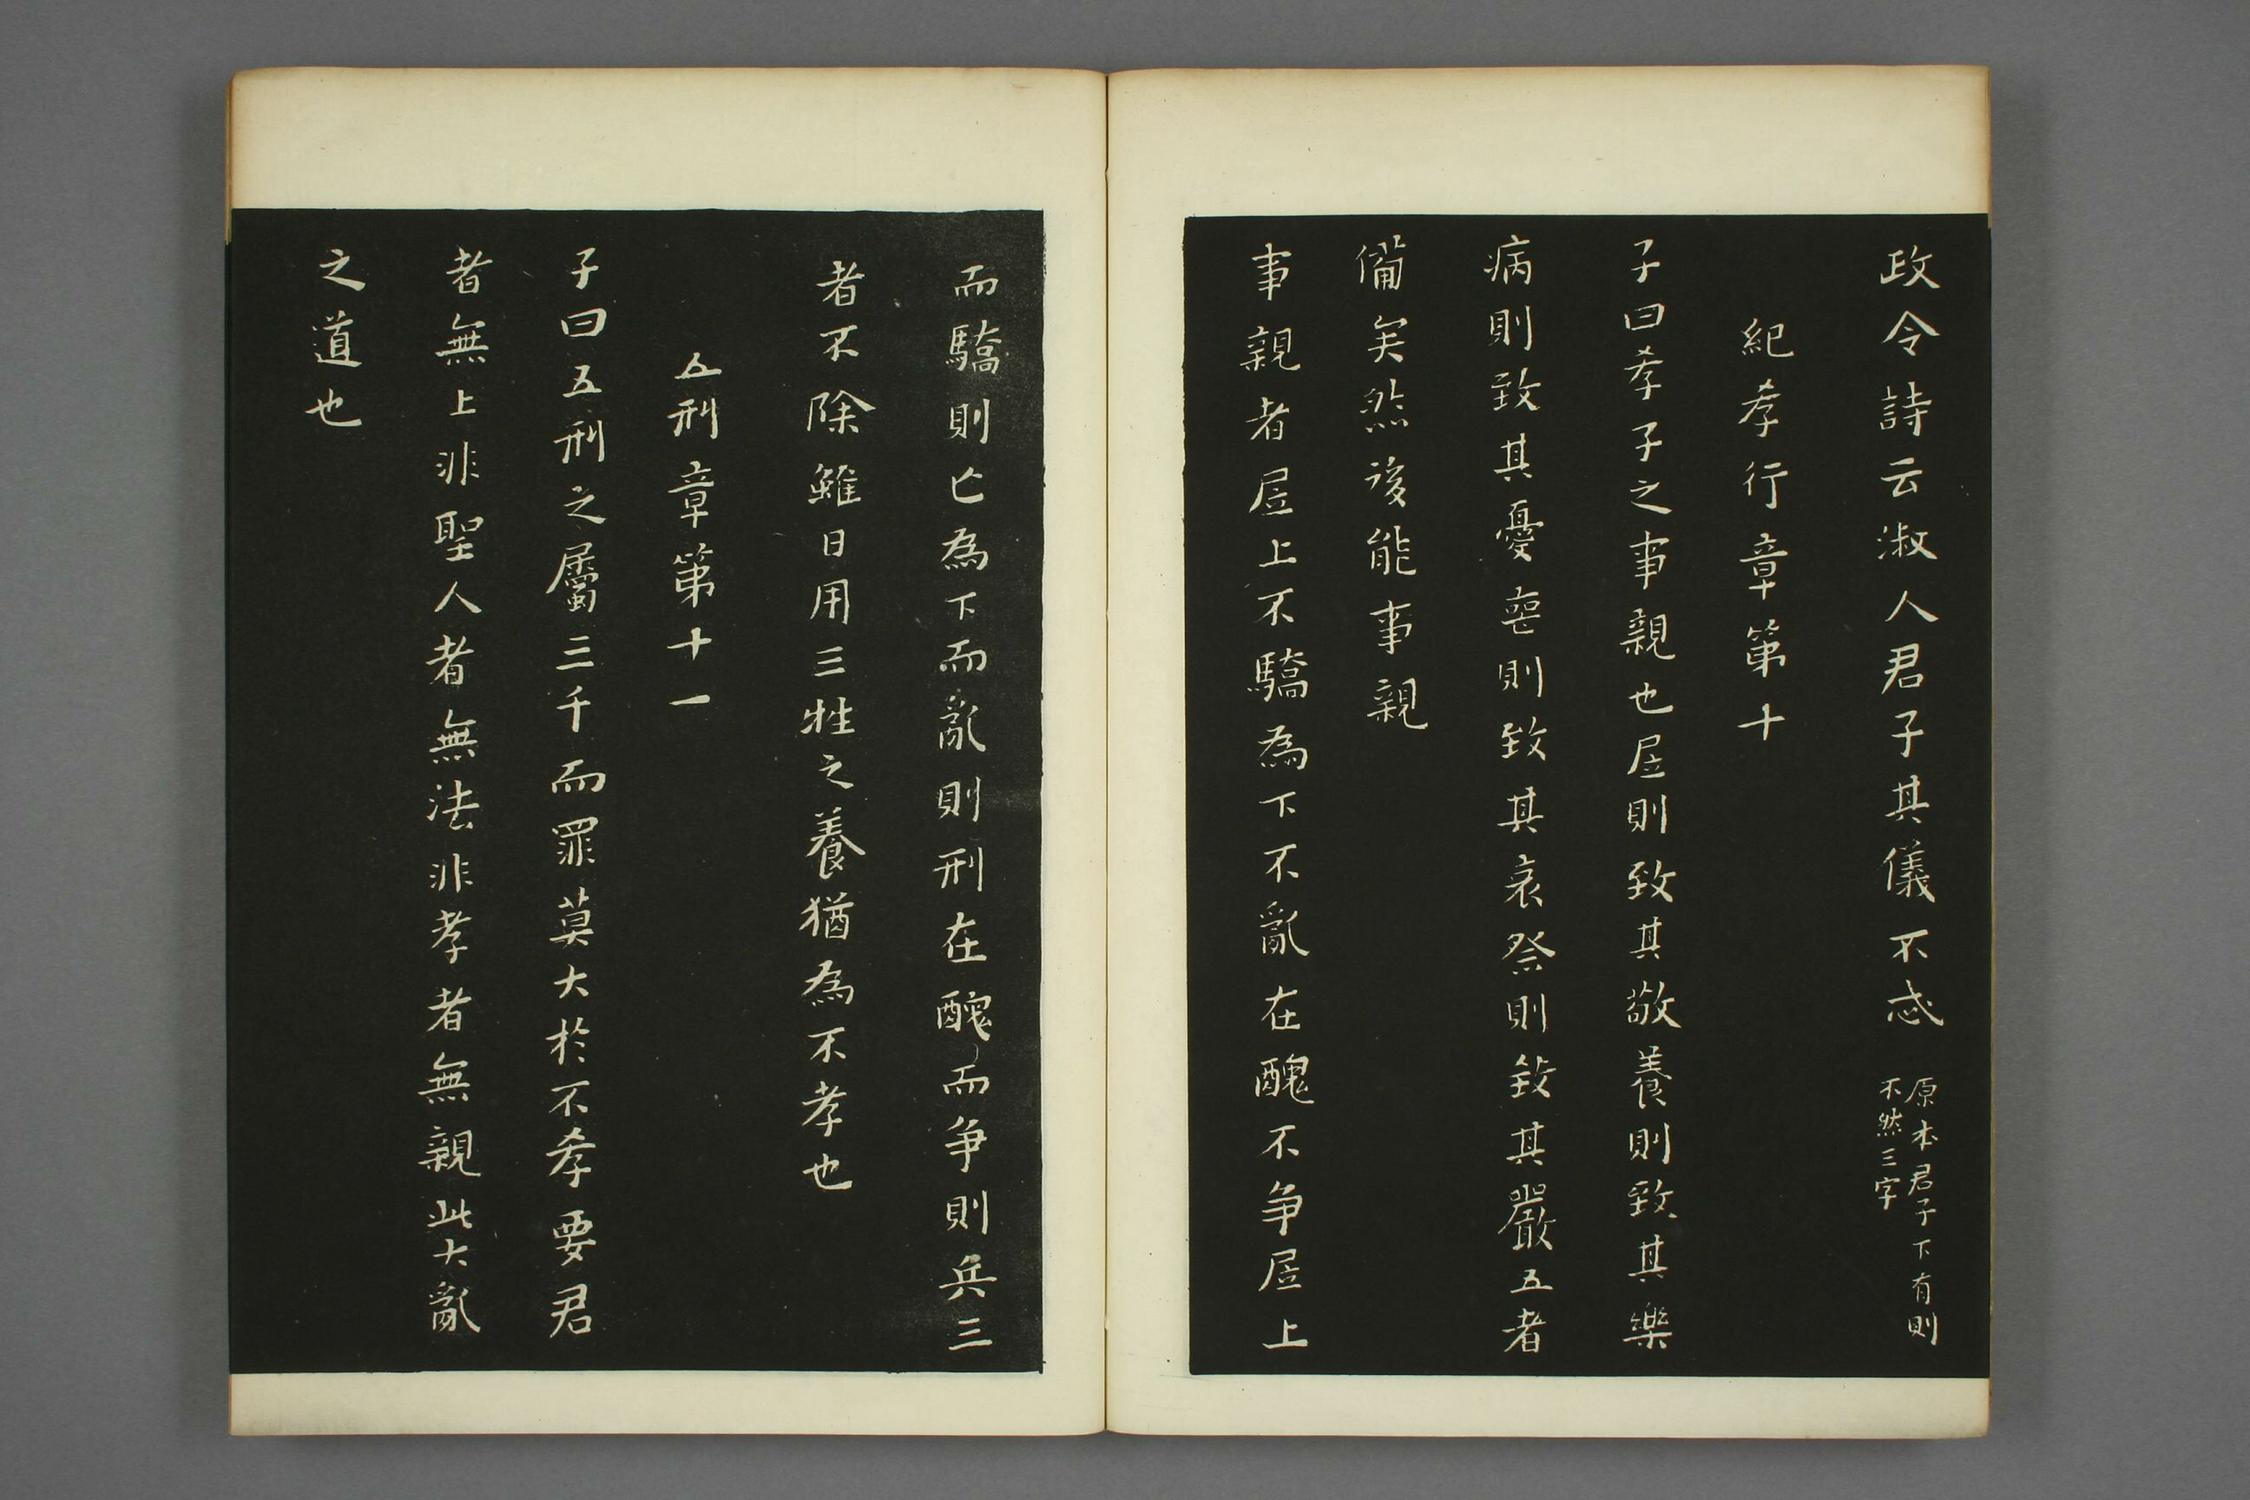 政令詩云淑人君子其儀不忒
原本君子下有則
不然三字
紀孝行章第十
子曰孝子之事親也居則致其敬養則致其樂
病則致其憂喪則致其哀祭則致其嚴五者
備矣然後能事親
事親者居上不驕為下不亂在醜不爭居上
而驕則亡為下而亂則刑在醜而爭則兵三
者不除雖日用三牲之養猶為不孝也
五刑章第十一
子曰五刑之屬三千而罪莫大於不孝要君
者無上非聖人者無法非孝者無親此大亂
之道也